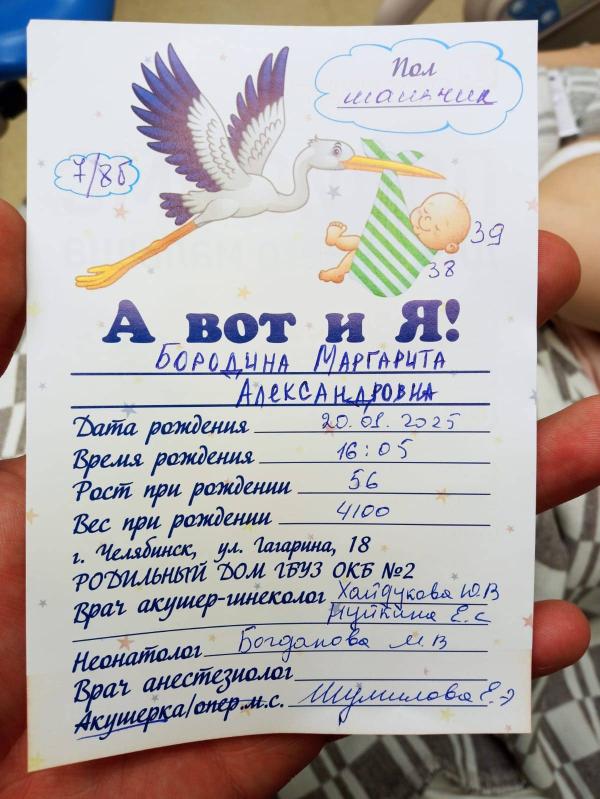 Пол
мальчик
7/8б
39
38
А вот и Я!
БОРОДИНА МАРГАРИТА
АЛЕКСАНДРОВНА
Дата рождения 20.01.2025
Время рождения 16:05
Рост при рождении 56
Вес при рождении 4100
г. Челябинск, ул. Гагарина, 18
РОДИЛЬНЫЙ ДОМ ГБУЗ ОКБ №2
Врач акушер-гинеколог Хайдукова Ю.В
Е.С
Неонатолог Богданова М.В
Врач анестезиолог
Акушерка/опер.м.с. Шумилова Е.Э